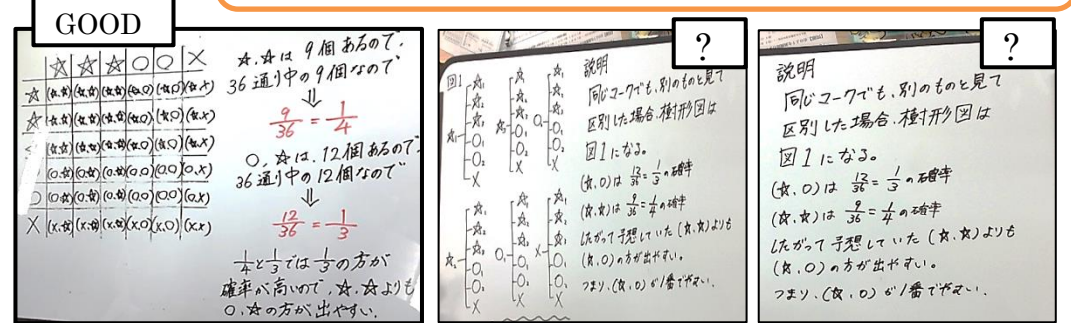 GOOD
☆ ☆ ☆ ○ ○ ×
☆ (☆,☆) (☆,☆) (☆,☆) (☆,○) (☆,○) (☆,×)
☆ (☆,☆) (☆,☆) (☆,☆) (☆,○) (☆,○) (☆,×)
(☆,☆) (☆,☆) (☆,☆) (☆,○) (☆,○) (☆,×)
(○,☆) (○,☆) (○,☆) (○,○) (○,○) (○,×)
○ (○,☆) (○,☆) (○,☆) (○,○) (○,○) (○,×)
× (×,☆) (×,☆) (×,☆) (×,○) (×,○) (×,×)
☆,☆は 9個あるので、
36通り中の9個なので
⇓
9/36 = 1/4
○,☆は、12個あるので
36通り中の12個なので
⇓
12/36 = 1/3
1/4と1/3では1/3の方が
確率が高いので、☆,☆よりも
○,☆の方が出やすい。
?
図1
☆₁ ☆₁ ☆₂ ☆₃ ○₁ ○₂ ×
☆₂ ☆₁ ☆₂ ☆₃ ○₁ ○₂ ×
○₂ ☆₁ ☆₂ ☆₃ ○₁ ○₂ ×
☆₃ ☆₁ ☆₂ ☆₃ ○₁ ○₂ ×
○₁ ☆₁ ☆₂ ☆₃ ○₁ ○₂ ×
× ☆₁ ☆₂ ☆₃ ○₁ ○₂ ×
説明
同じマークでも、別のものと見て
区別した場合、樹形図は
図1になる。
(☆,○)は 12/36 = 1/3 の確率
(☆,☆)は 9/36 = 1/4 の確率
したがって予想していた(☆,☆)よりも
(☆,○)の方が出やすい。
つまり、(☆,○)が1番でやすい。
?
説明
同じマークでも、別のものと見て
区別した場合、樹形図は
図1になる。
(☆,○)は 12/36 = 1/3 の確率
(☆,☆)は 9/36 = 1/4 の確率
したがって予想していた(☆,☆)よりも
(☆,○)の方が出やすい。
つまり、(☆,○)が1番でやすい。